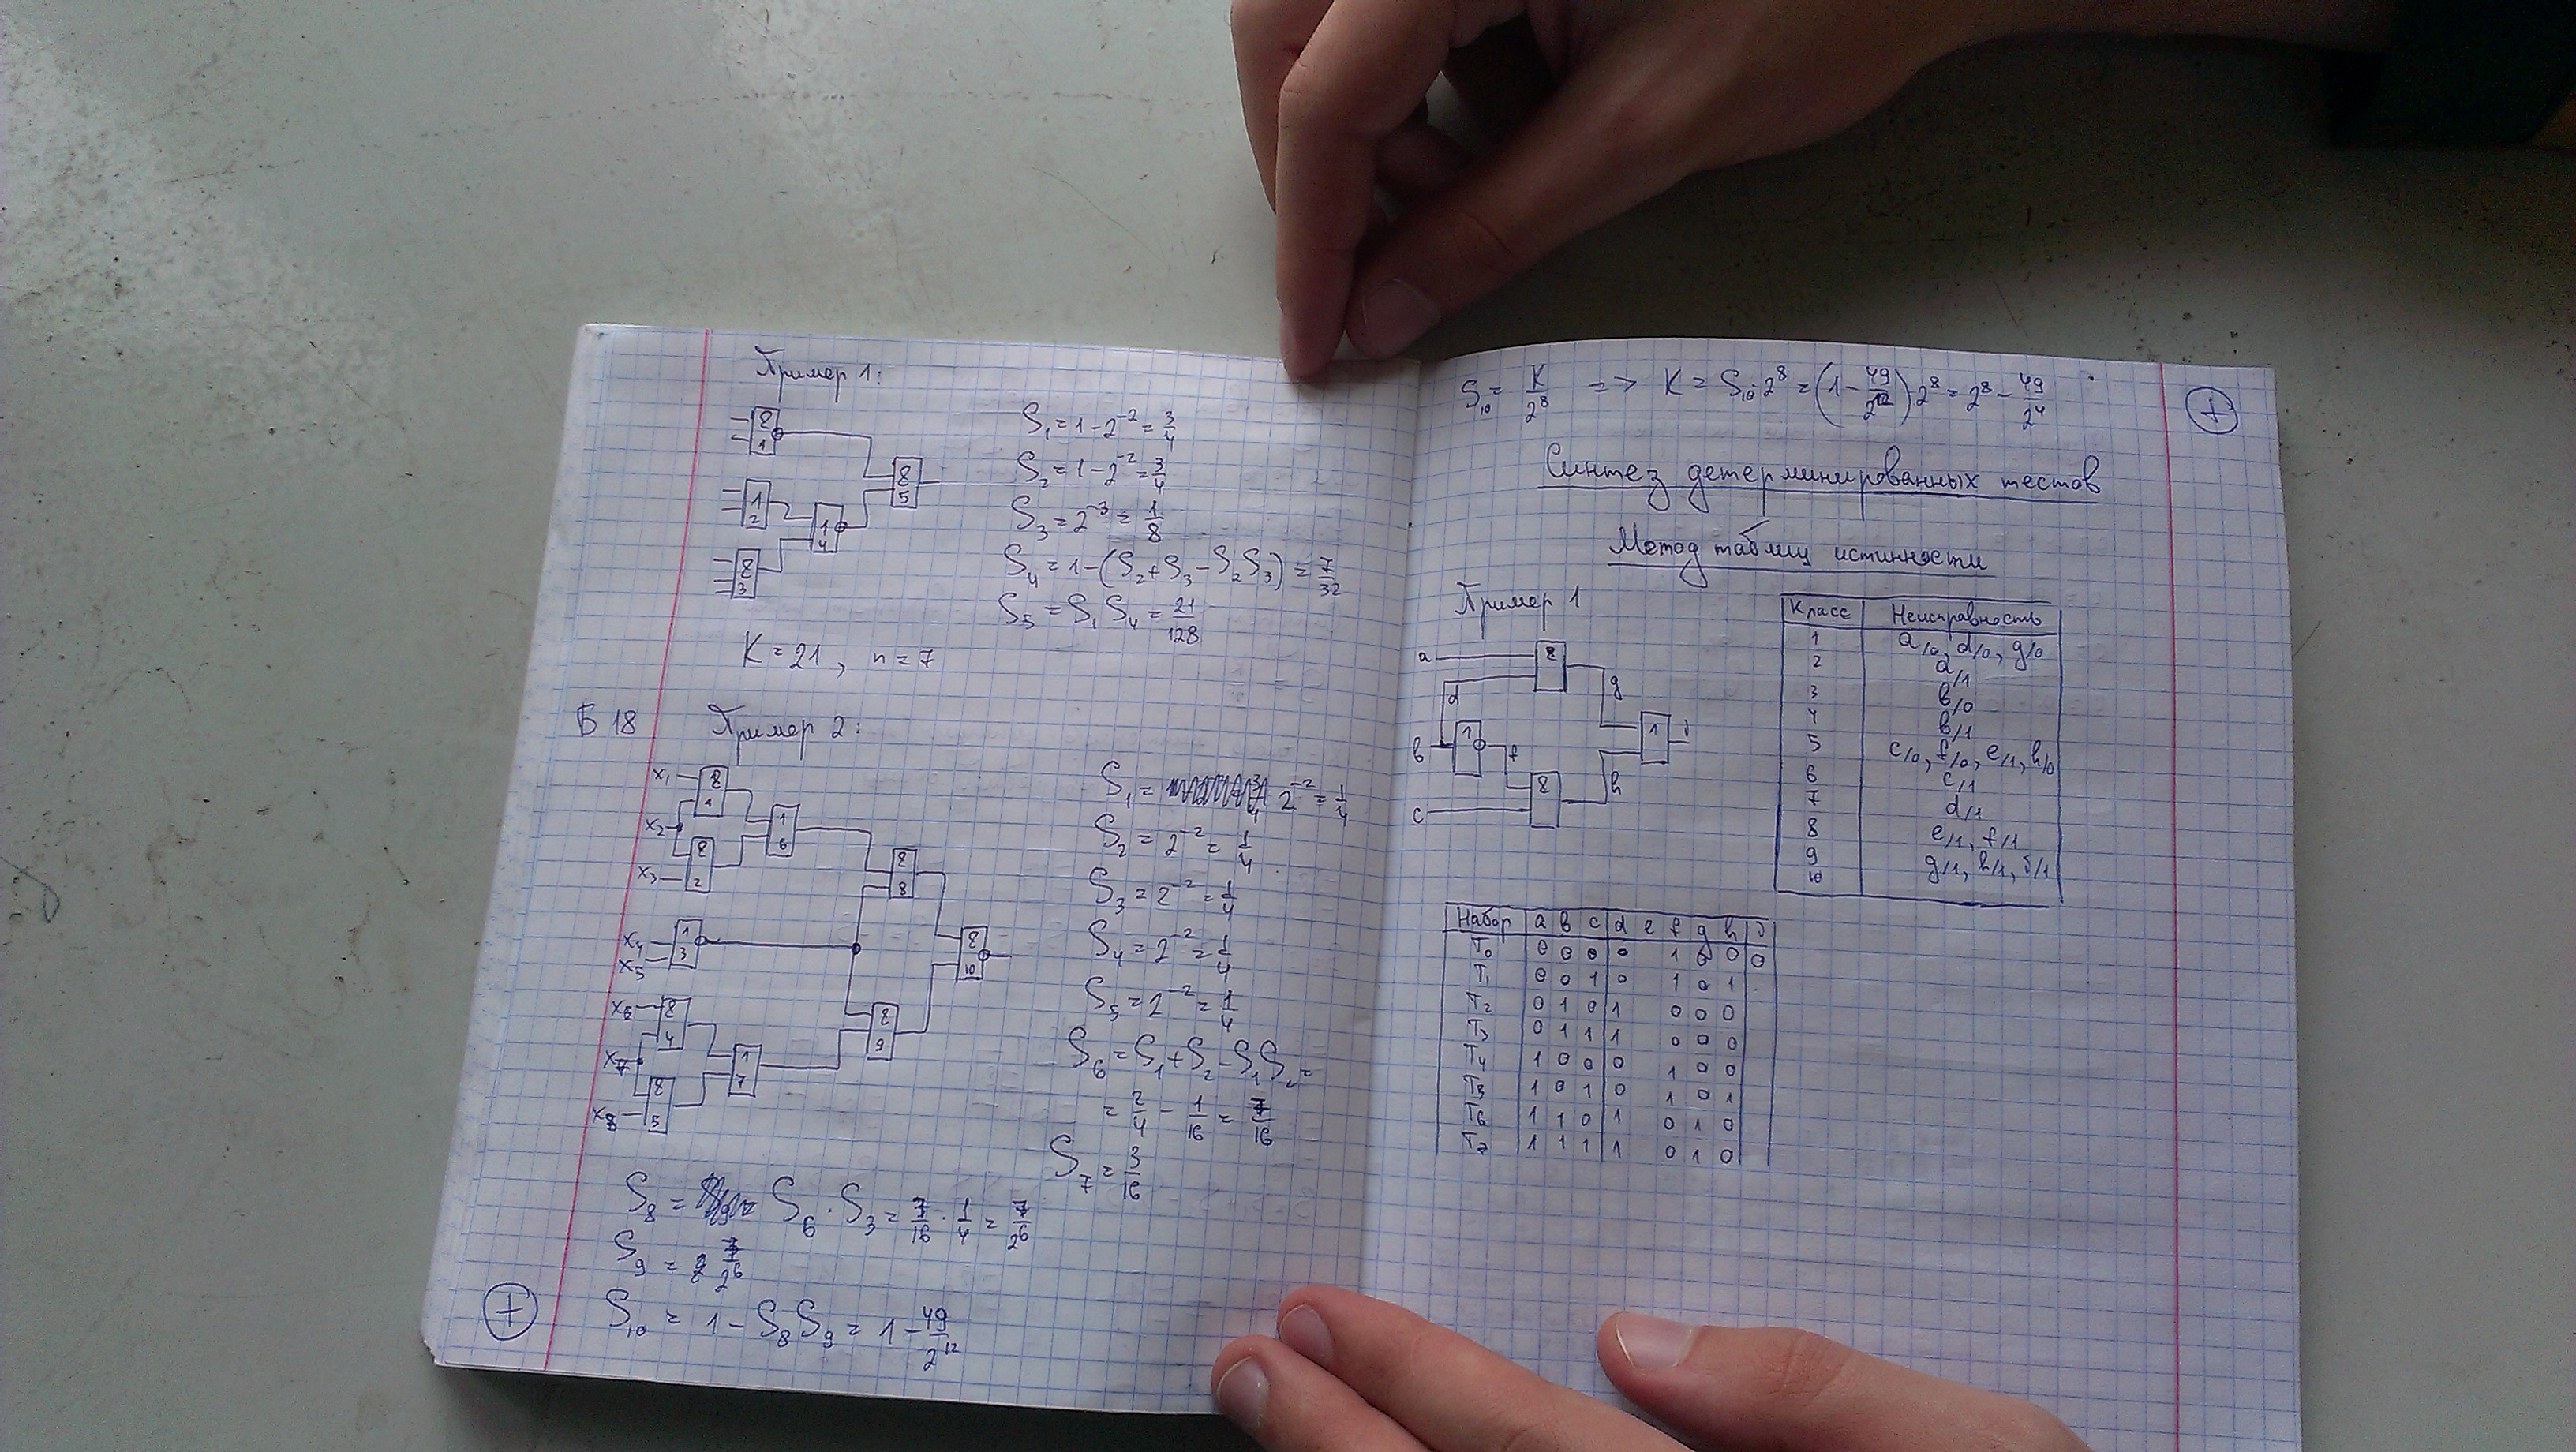 Пример 1:
&
1
1
2
&
3
1
4
&
5
S₁ = 1 - 2⁻² = 3/4
S₂ = 1 - 2⁻² = 3/4
S₃ = 2⁻³ = 1/8
S₄ = 1 - (S₂ + S₃ - S₂S₃) = 7/32
S₅ = S₁ S₄ = 21/128
K = 21, n = 7
Б 18 Пример 2:
x₁
x₂
x₃
x₄
x₅
x₆
x₇
x₈
&
1
&
2
1
3
&
4
&
5
1
6
1
7
&
8
&
9
&
10
S₁ = 2⁻² = 1/4
S₂ = 2⁻² = 1/4
S₃ = 2⁻² = 1/4
S₄ = 2⁻² = 1/4
S₅ = 2⁻² = 1/4
S₆ = S₁ + S₂ - S₁S₂ =
= 2/4 - 1/16 = 7/16
S₇ = 3/16
S₈ = S₆ · S₃ = 7/16 · 1/4 = 7/2⁶
S₉ = 7/2⁶
S₁₀ = 1 - S₈S₉ = 1 - 49/2¹²
+
S₁₀ = K/2⁸ => K = S₁₀ · 2⁸ = (1 - 49/2¹²) 2⁸ = 2⁸ - 49/2⁴
+
Синтез детерминированных тестов
Метод таблиц истинности
Пример 1
a
d
b
c
f
g
h
&
1
&
1
Класс Неисправность
1 a/0, d/0, g/0
2 a/1
3 b/0
4 b/1
5 c/0, f/0, e/1, h/0
6 c/1
7 d/1
8 e/1, f/1
9 g/1, h/1, j/1
10
Набор a b c d e f g h j
T₀ 0 0 0 0 1 0 0 0
T₁ 0 0 1 0 1 0 1
T₂ 0 1 0 1 0 0 0
T₃ 0 1 1 1 0 0 0
T₄ 1 0 0 0 1 0 0
T₅ 1 0 1 0 1 0 1
T₆ 1 1 0 1 0 1 0
T₇ 1 1 1 1 0 1 0